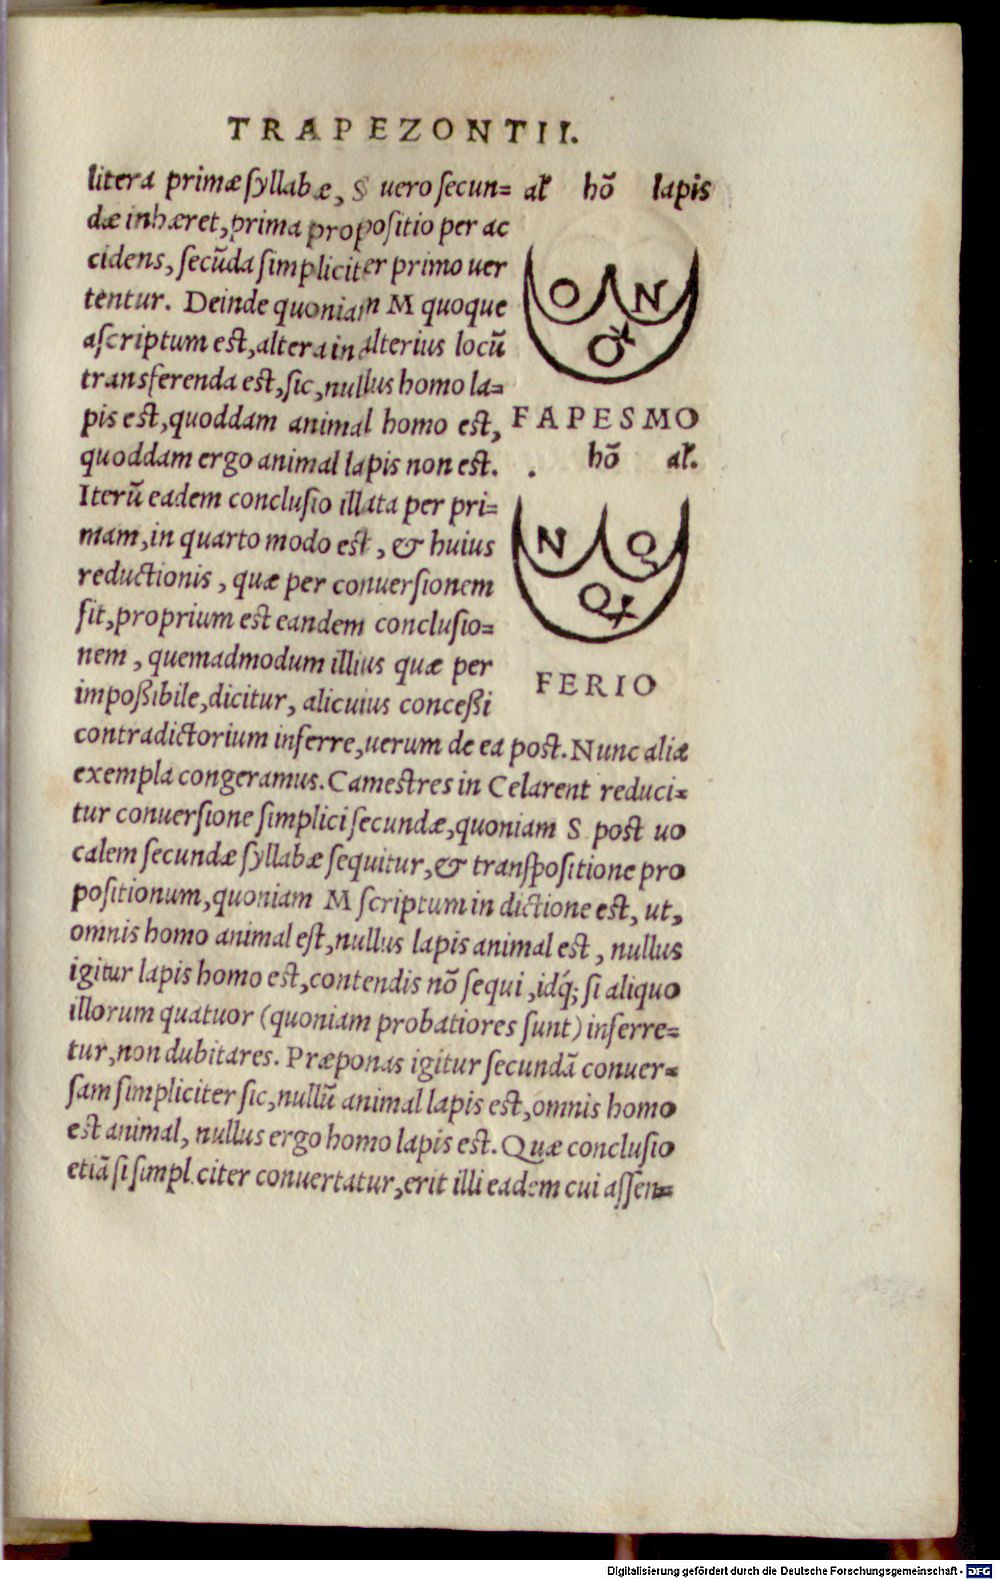 TRAPEZONTII.
litera primæ syllabæ, S uero secun=
dæ inhæret, prima propositio per ac
cidens, secūda simpliciter primo uer
tentur. Deinde quoniam M quoque
ascriptum est, altera in alterius locū
transferenda est, sic, nullus homo la=
pis est, quoddam animal homo est,
quoddam ergo animal lapis non est.
Iterū eadem conclusio illata per pri=
mam, in quarto modo est, & huius
reductionis, quæ per conuersionem
fit, proprium est eandem conclusio=
nem, quemadmodum illius quæ per
impoßibile, dicitur, alicuius conceßi
hō lapis
O N
O
FAPESMO
hō
N Q
Q
FERIO
contradictorium inferre, uerum de ea post. Nunc aliæ
exempla congeramus. Camestres in Celarent reduci=
tur conuersione simplici secundæ, quoniam S post uo
calem secundæ syllabæ sequitur, & transpositione pro
positionum, quoniam M scriptum in dictione est, ut,
omnis homo animal est, nullus lapis animal est, nullus
igitur lapis homo est, contendis nō sequi, idq́; si aliquo
illorum quatuor (quoniam probatiores sunt) inferre=
tur, non dubitares. Præponas igitur secundā conuer=
sam simpliciter sic, nullū animal lapis est, omnis homo
est animal, nullus ergo homo lapis est. Quæ conclusio
etiā si simpl citer conuertatur, erit illi eadem cui assen=
Digitalisierung gefördert durch die Deutsche Forschungsgemeinschaft - DFG